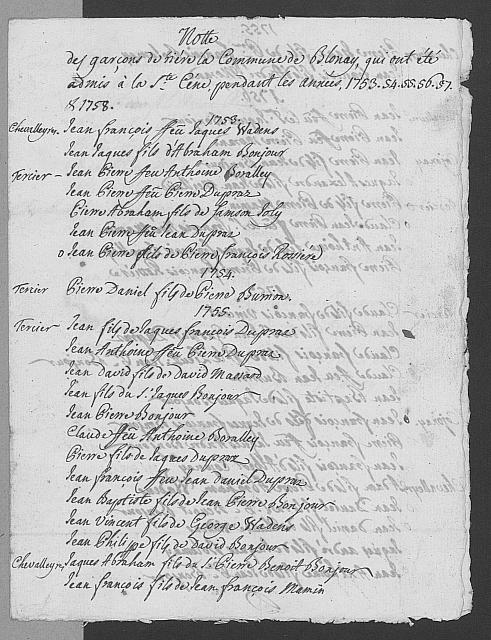 Notte
des garçons de tiére la Commune de Blonay, qui ont été
admis à la S.te Cene, pendant les années, 1753.54.55.56.57.
& 1758.
1753.
Chevalleyre Jean françois ffeu Jaques Wadens
Jean Jaques fils d'Abraham Bonjour
Tercier Jean Pierre ffeu Anthoine Boralley
Jean Pierre ffeu Pierre Dupraz
Pierre Abraham fils de Samson Joly
Jean Pierre ffeu Jean Dupraz
o Jean Pierre fils de Pierre françois
1754.
Tercier Pierre Daniel fils de Pierre Burrion.
1755.
Tercier Jean fils de Jaques françois Dupraz
Jean Anthoine ffeu Pierre Dupraz
Jean David fils de David Massard
Jean fils du S.r Jaques Bonjour
Jean Pierre Bonjour
Claude ffeu Anthoine Boralley
Pierre fils de Jaques Dupraz
Jean françois ffeu Jean Daniel Dupraz
Jean Baptiste fils de Jean Pierre Bonjour
Jean Vincent fils de George Wadens
Jean Philippe fils de David Bonjour
Chevalleyre Jaques Abraham fils du S.r Pierre Benoit Bonjour
Jean françois fils de Jean françois Mamin